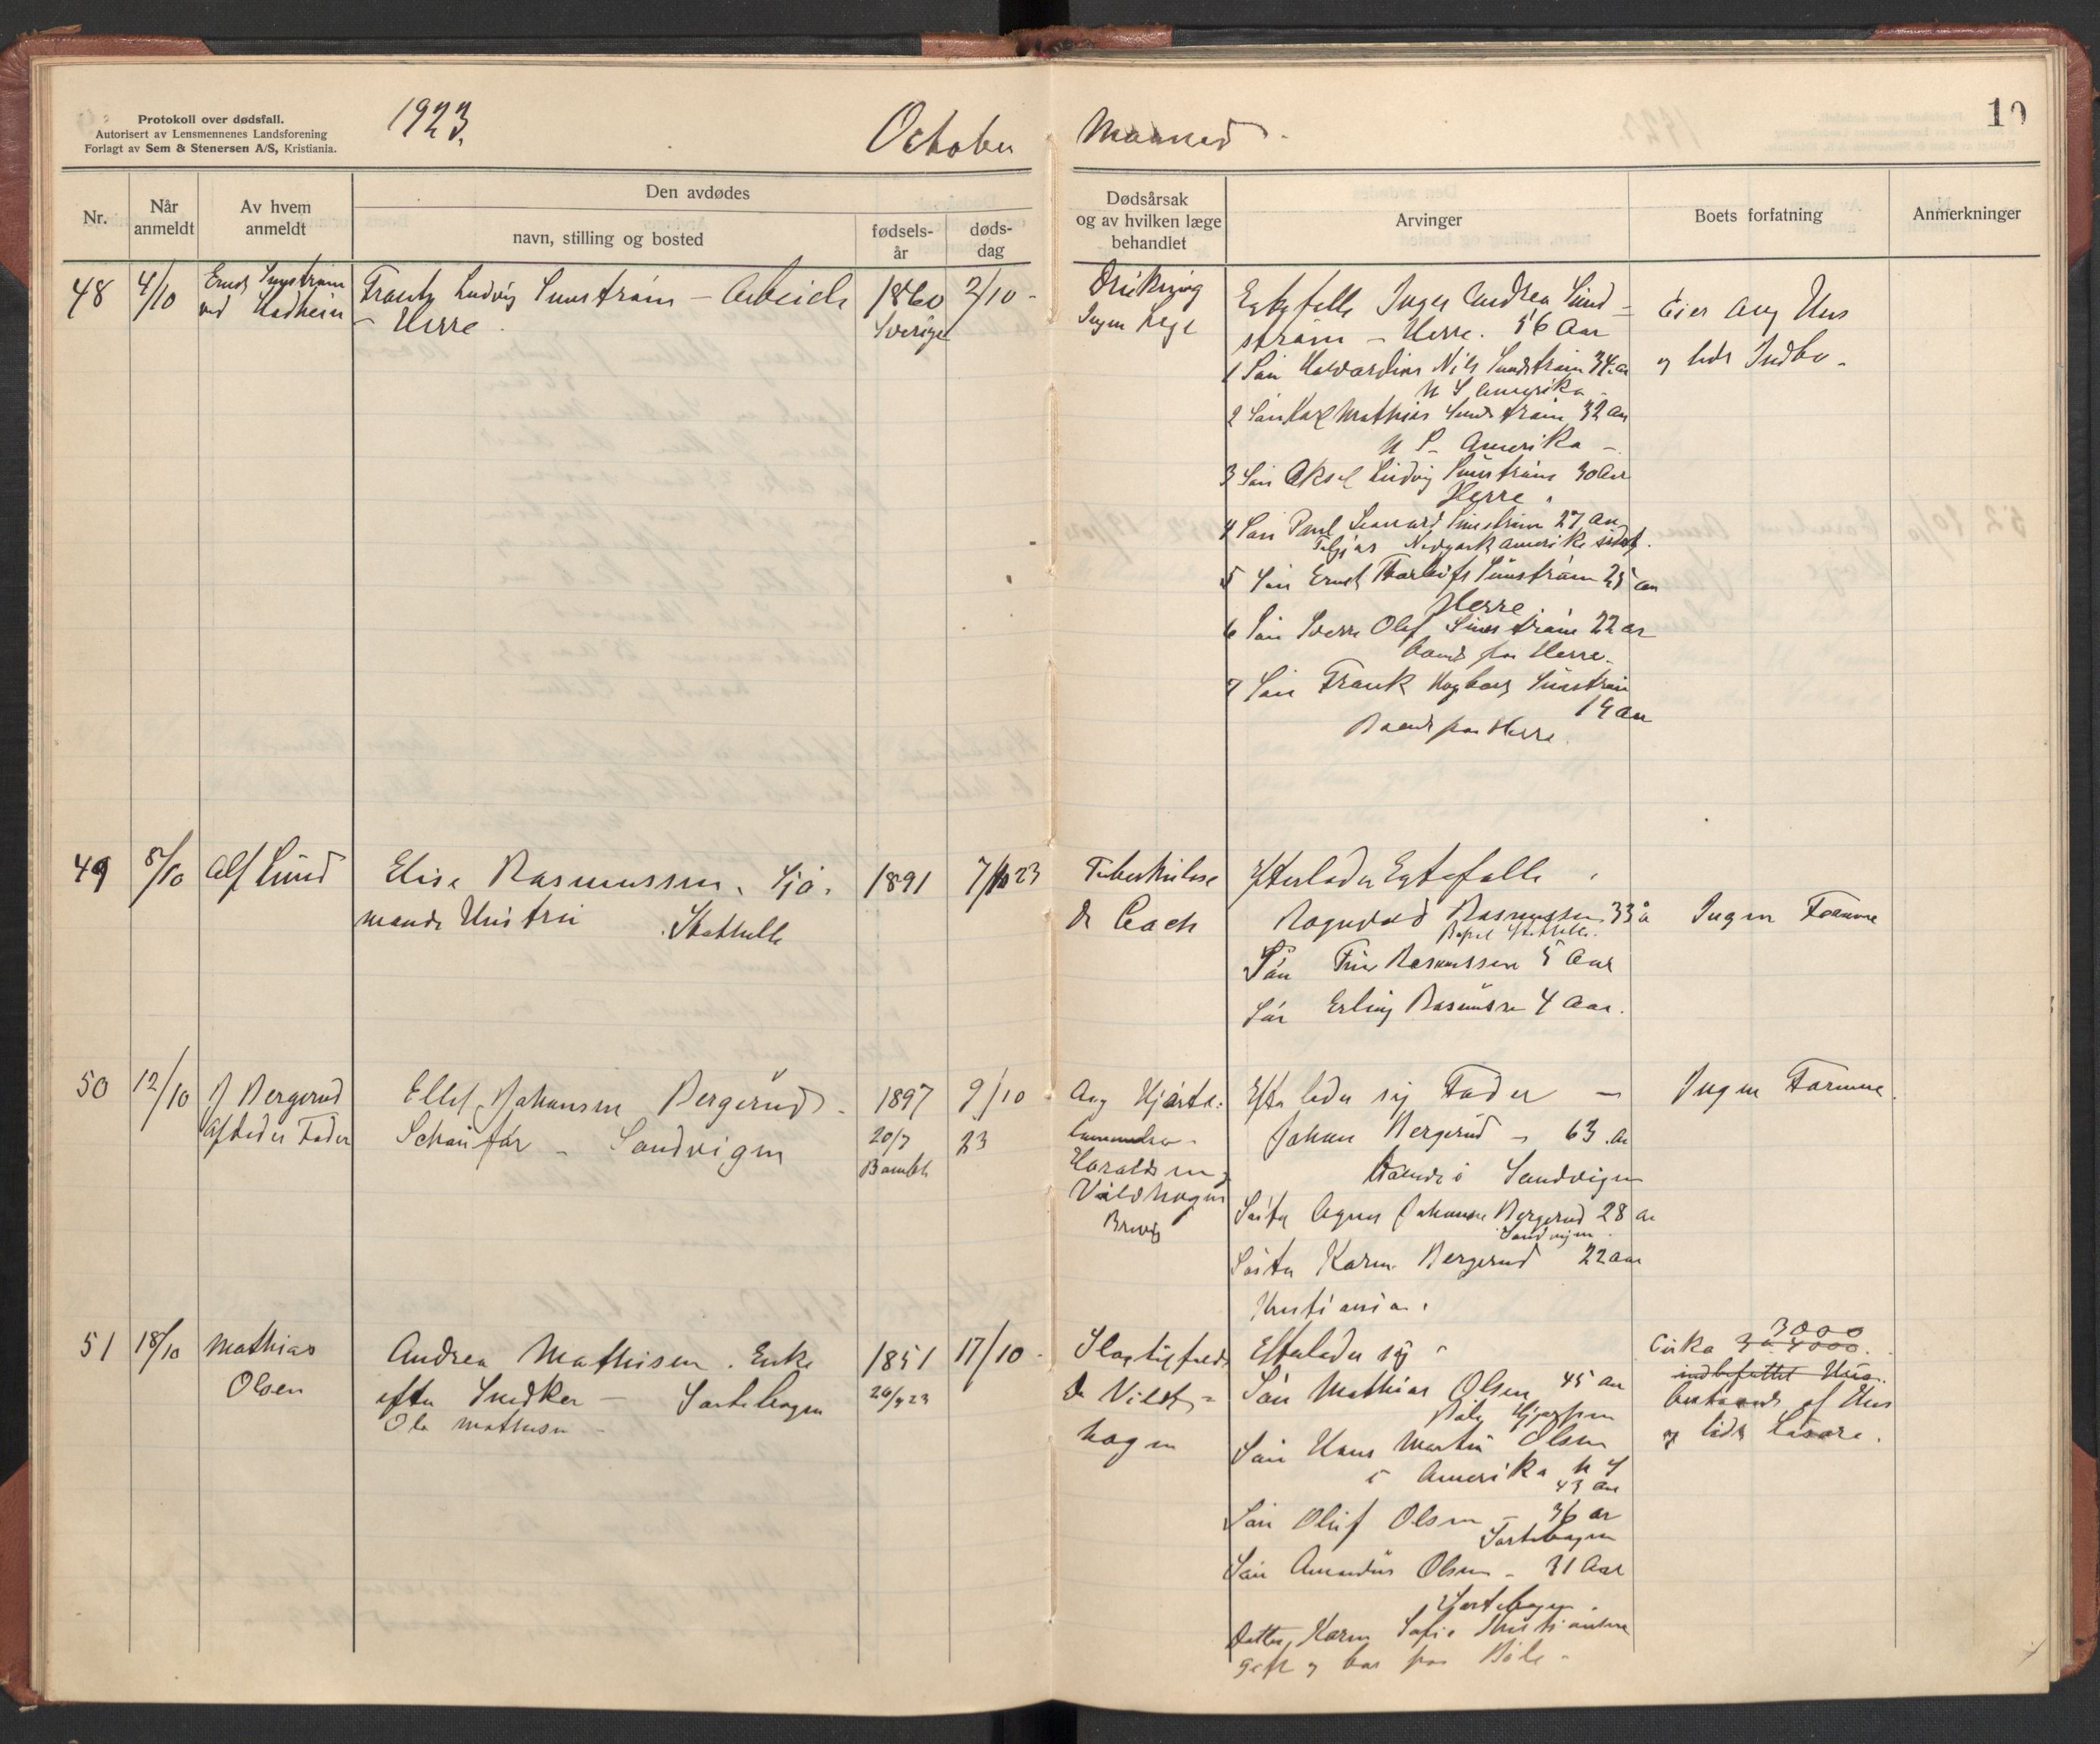 Protokoll over dødsfall.
Autorisert av Lensmennenes Landsforening
Forlagt av Sem & Stenersen A/S, Kristiania.
1923.
October Maaned
10
Nr.
Når anmeldt
Av hvem anmeldt
Den avdødes
navn, stilling og bosted
fødsels-år
døds-dag
Dødsårsak og av hvilken læge behandlet
Arvinger
Boets forfatning
Anmerkninger
48 4/10 Ernst Sunström
Frantz Ludvig Sunström - Arbeider
- Herre.
1860 2/10 -
Sverige
Drukning
Ingen Læge
Egtefelle Inger Andrea Sund=
ström - Herre. 56 Aar
1 Sön Halvardius Nils Sundström 34 Aar
N S Amerika
2 Sön Karl Mathias Sundström 32 Aar
N S. Amerika -
3 Sön Aksel Ludvig Sunström 30 Aar
Herre.
4 Sön Paul Leonard Sunström 27 Aar
Newyork Amerika sidst.
5 Sön Ernst Thorleif Sunström 25 Aar
Herre.
6 Sön Sverre Olaf Sunström 22 Aar
Boende paa Herre.
7 Sön Frank Hagbart Sunström
19 Aar
Boende paa Herre.
Eier Aug Hus
og lidt Indbo.
49 8/10 Alf Lund
Elise Rasmussen. Sjö-
mands Hustru Stathelle
1891 7/10 23
Tuberkulose
Dr Coch
Efterlader Egtefelle
Ragnvald Rasmussen 33 Aar
Bopæl Stathelle.
Sön Finn Rasmussen 5 Aar
Sön Erling Rasmussen 4 Aar.
Ingen Formue
50 12/10 J Bergerud
Afdødes Fader
Ellef Johansen Bergerud -
Schauför - Sandvigen
1897 9/10
20/7 23
Bamble
Hjerte-
Haraldsen og
Vildhagen
Brevig
Efterlader sig Fader -
Johan Bergerud - 63 Aar
Boende i Sandvigen
Söster Agnes Johanne Bergerud 28 Aar
Sandvigen.
Söster Karen Bergerud 22 Aar
Kristiania.
Ingen Formue
51 18/10 Mathias
Olsen
Andrea Mathisen. Enke
efter Snedker - Sartebogen
Ole Mathisen -
1851 17/10
Slagtilfelde
Dr Vild=
hagen
Efterlader sig
Sön Mathias Olsen 45 Aar
Sön Hans Martin Olsen
i Amerika N S
43 Aar
Sön Oluf Olsen - 36 Aar
Sartebogen
Sön Amandus Olsen - 31 Aar
Sartebogen.
Datter, Karen Sofie Kristiansen
gift og bor paa Böle -
Cirka 3000
indbefattet Hus.
Bestaaende af Hus
og lidt Lösöre.